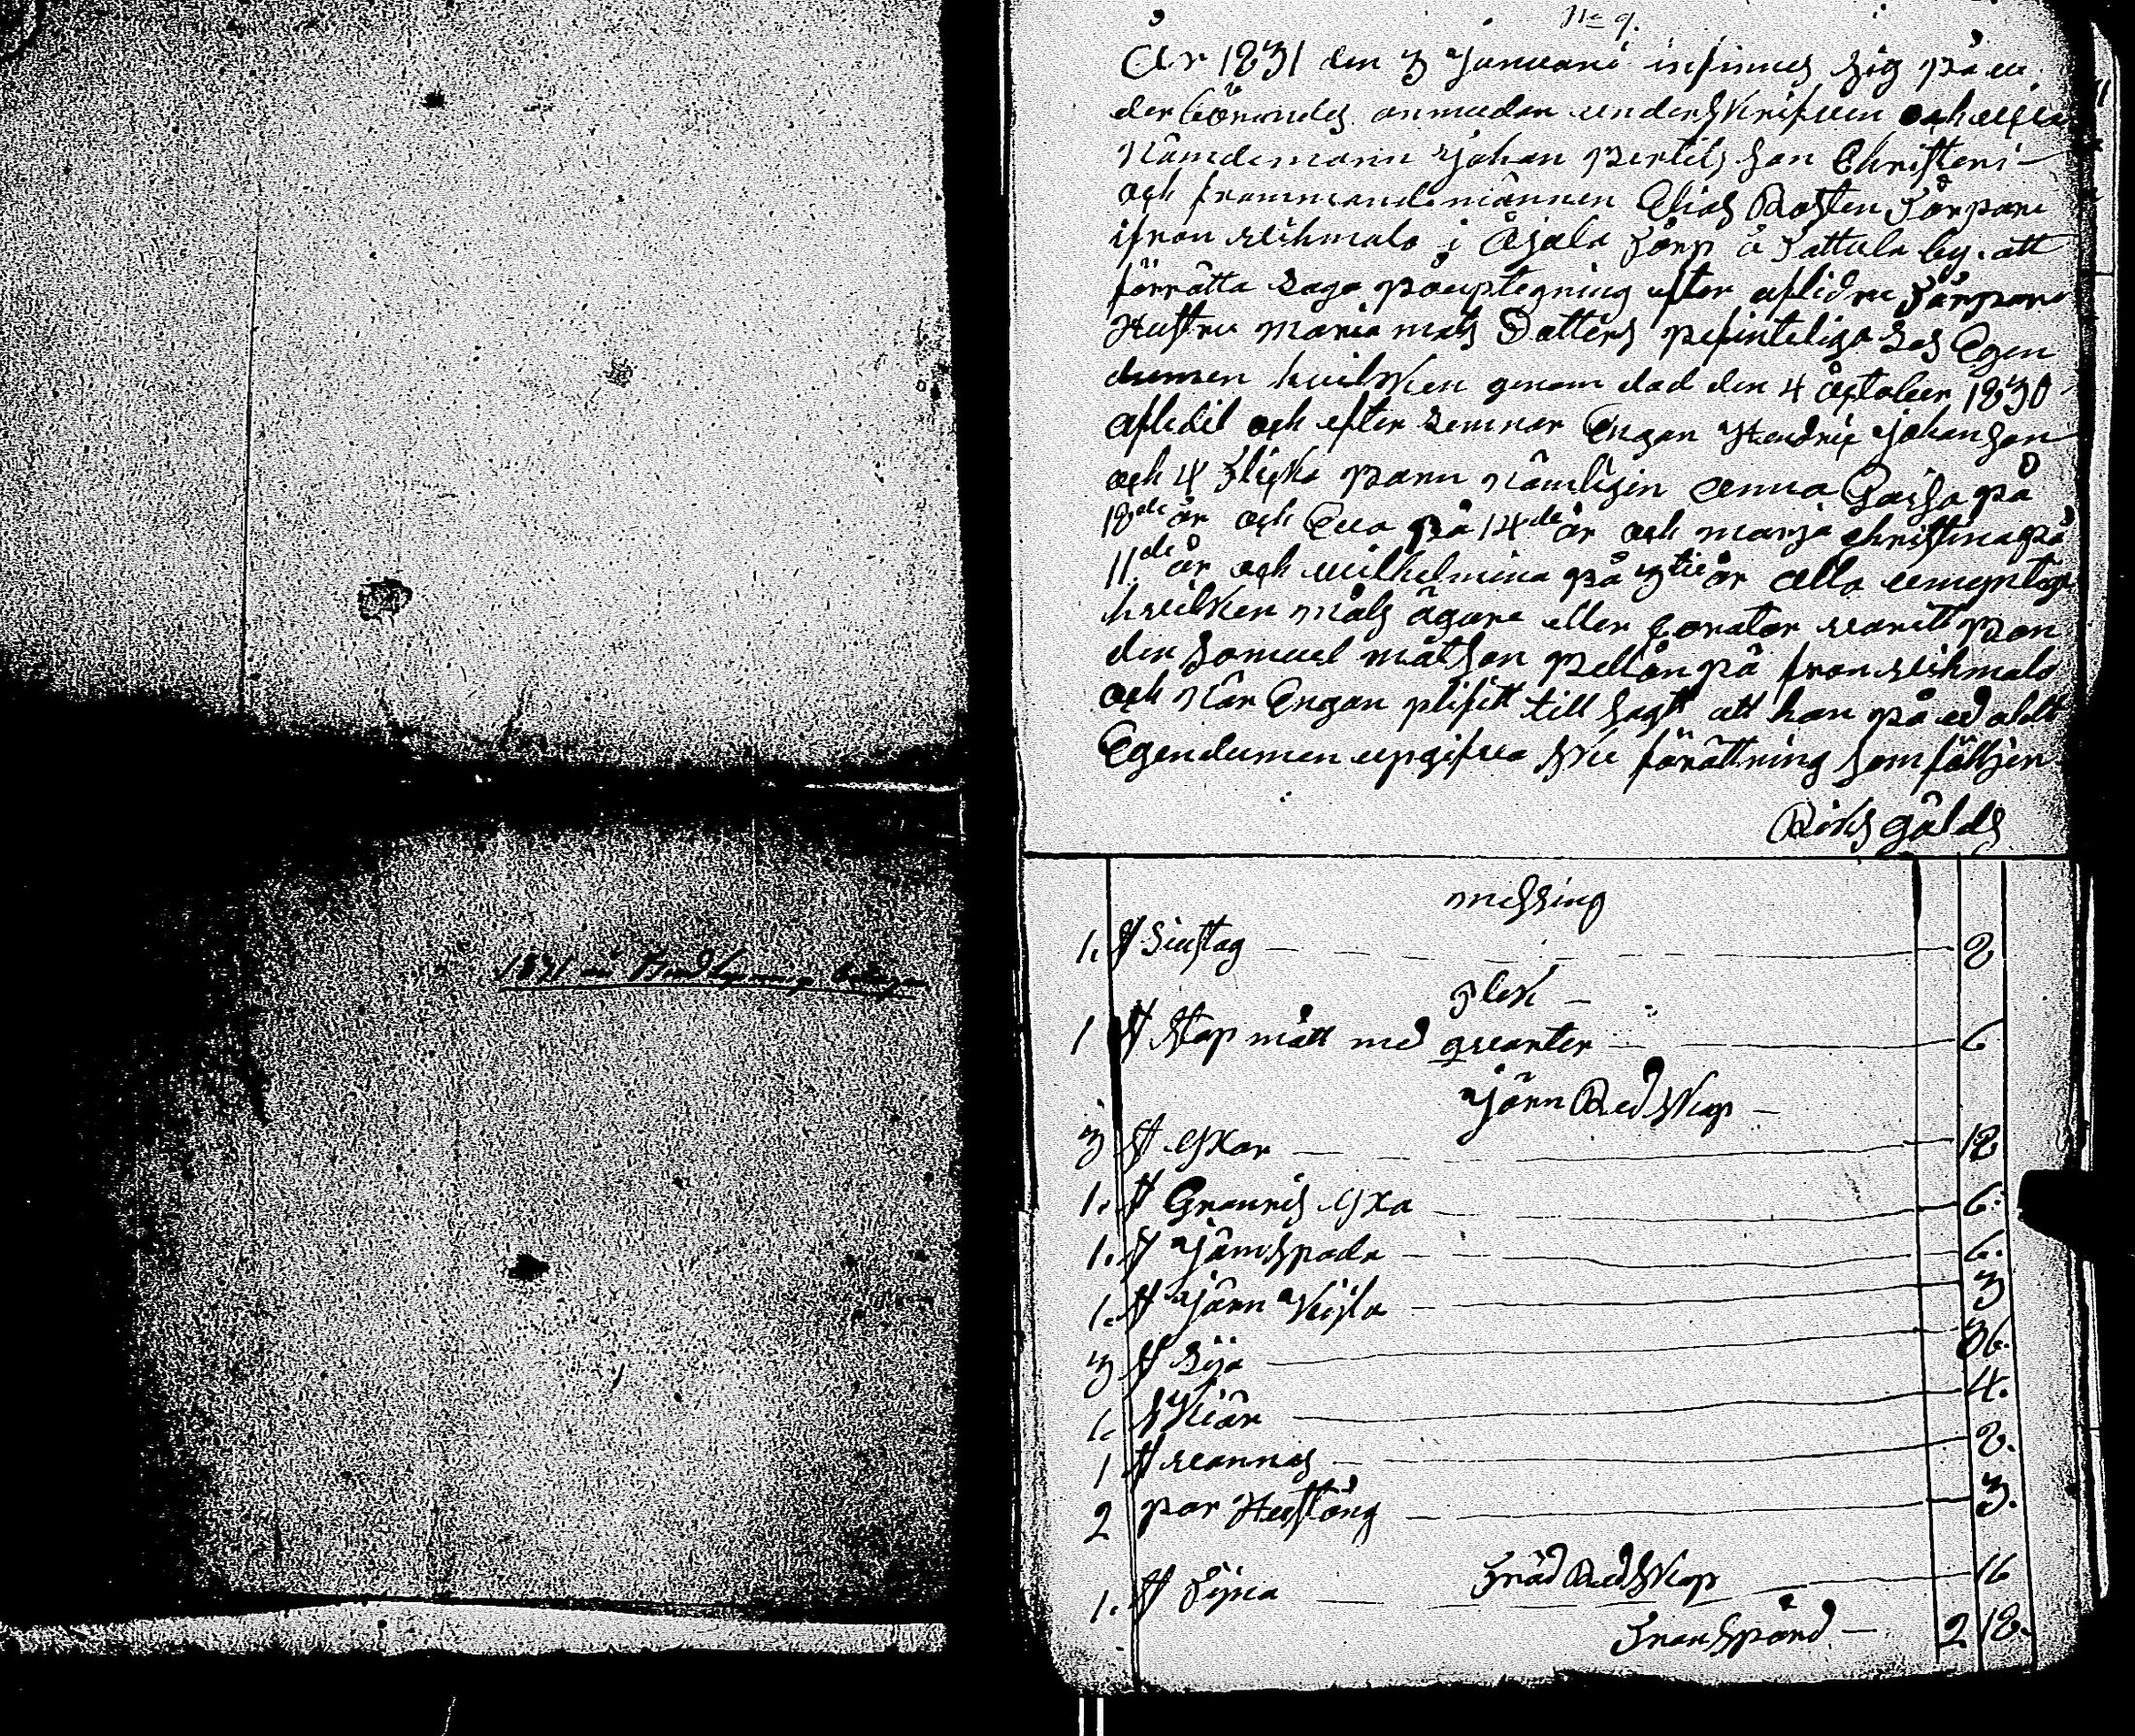 No 9.
År 1831 den 3 Januari infinnes sig på ve
derbörandes anmodan underskrifven
Nämdemann Johan Pertils son Christeri
och frammandemännen Elias Rosten Torpare
ifron Reihmalo i Åjala Torp å Tattula by. att
förrätta Laga påuptegning efter aflidne Torpare
Hustru Maria Mats Dotters pefinteliga Lös Egen
dumen hvilken genom död den 4 October 1830
aflidit och efter Lemnar Engan Hendric Johan Son
och 4 Flicka parn Nämligin Anna Caisa på
18de år och Eva på 14de år och Marja Christina på
11de år och Wilhelmina på 3tie år Alla umyntige
hvilken Måls ägare eller Corator varitt pon
den Somuel Mat Son Peltonpä fron Reihmalo
och När Engan plifitt till Sagt att han på ed aldt
Egendumen upgifva Ske förättning Som följer
Riks gälds
messing
1. st Liustag 8
plek
1 st Stop mått med qvarter 6
Järn Red Skap
3 st yxar 18
1. st Granris yxa 6.
1. st Järn Spada 6.
1. st Järn 3
3 st Lija 36.
1. Skiär 4.
1 st vannas 8.
2 par Hustång 3.
Träd Red Skap
1. st Tijna 16
Tran Spård 2 18.